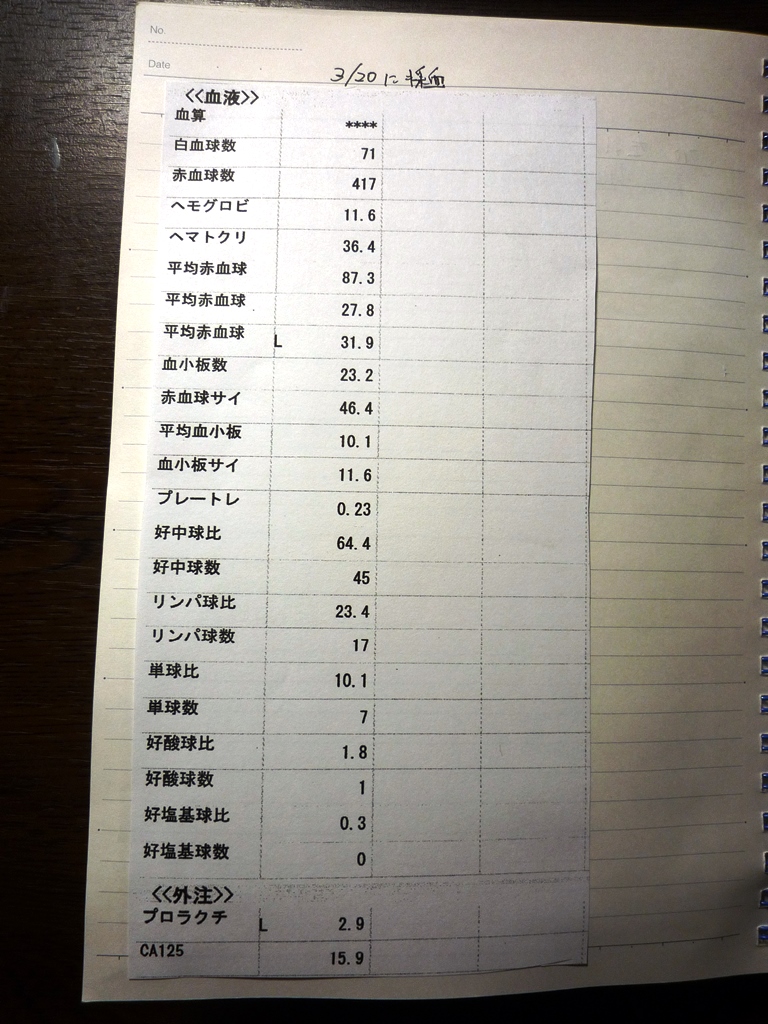 No.
Date
3/20に採血
<<血液>>
血算 ****
白血球数 71
赤血球数 417
ヘモグロビ 11.6
ヘマトクリ 36.4
平均赤血球 87.3
平均赤血球 27.8
平均赤血球 L 31.9
血小板数 23.2
赤血球サイ 46.4
平均血小板 10.1
血小板サイ 11.6
プレートレ 0.23
好中球比 64.4
好中球数 45
リンパ球比 23.4
リンパ球数 17
単球比 10.1
単球数 7
好酸球比 1.8
好酸球数 1
好塩基球比 0.3
好塩基球数 0
<<外注>>
プロラクチ L 2.9
CA125 15.9